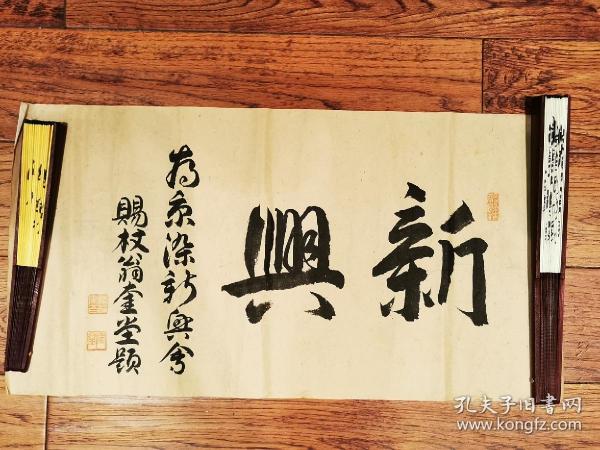 新興
為京染新興會
賜杖翁奎堂題
孔夫子旧書网
www.kongfz.com